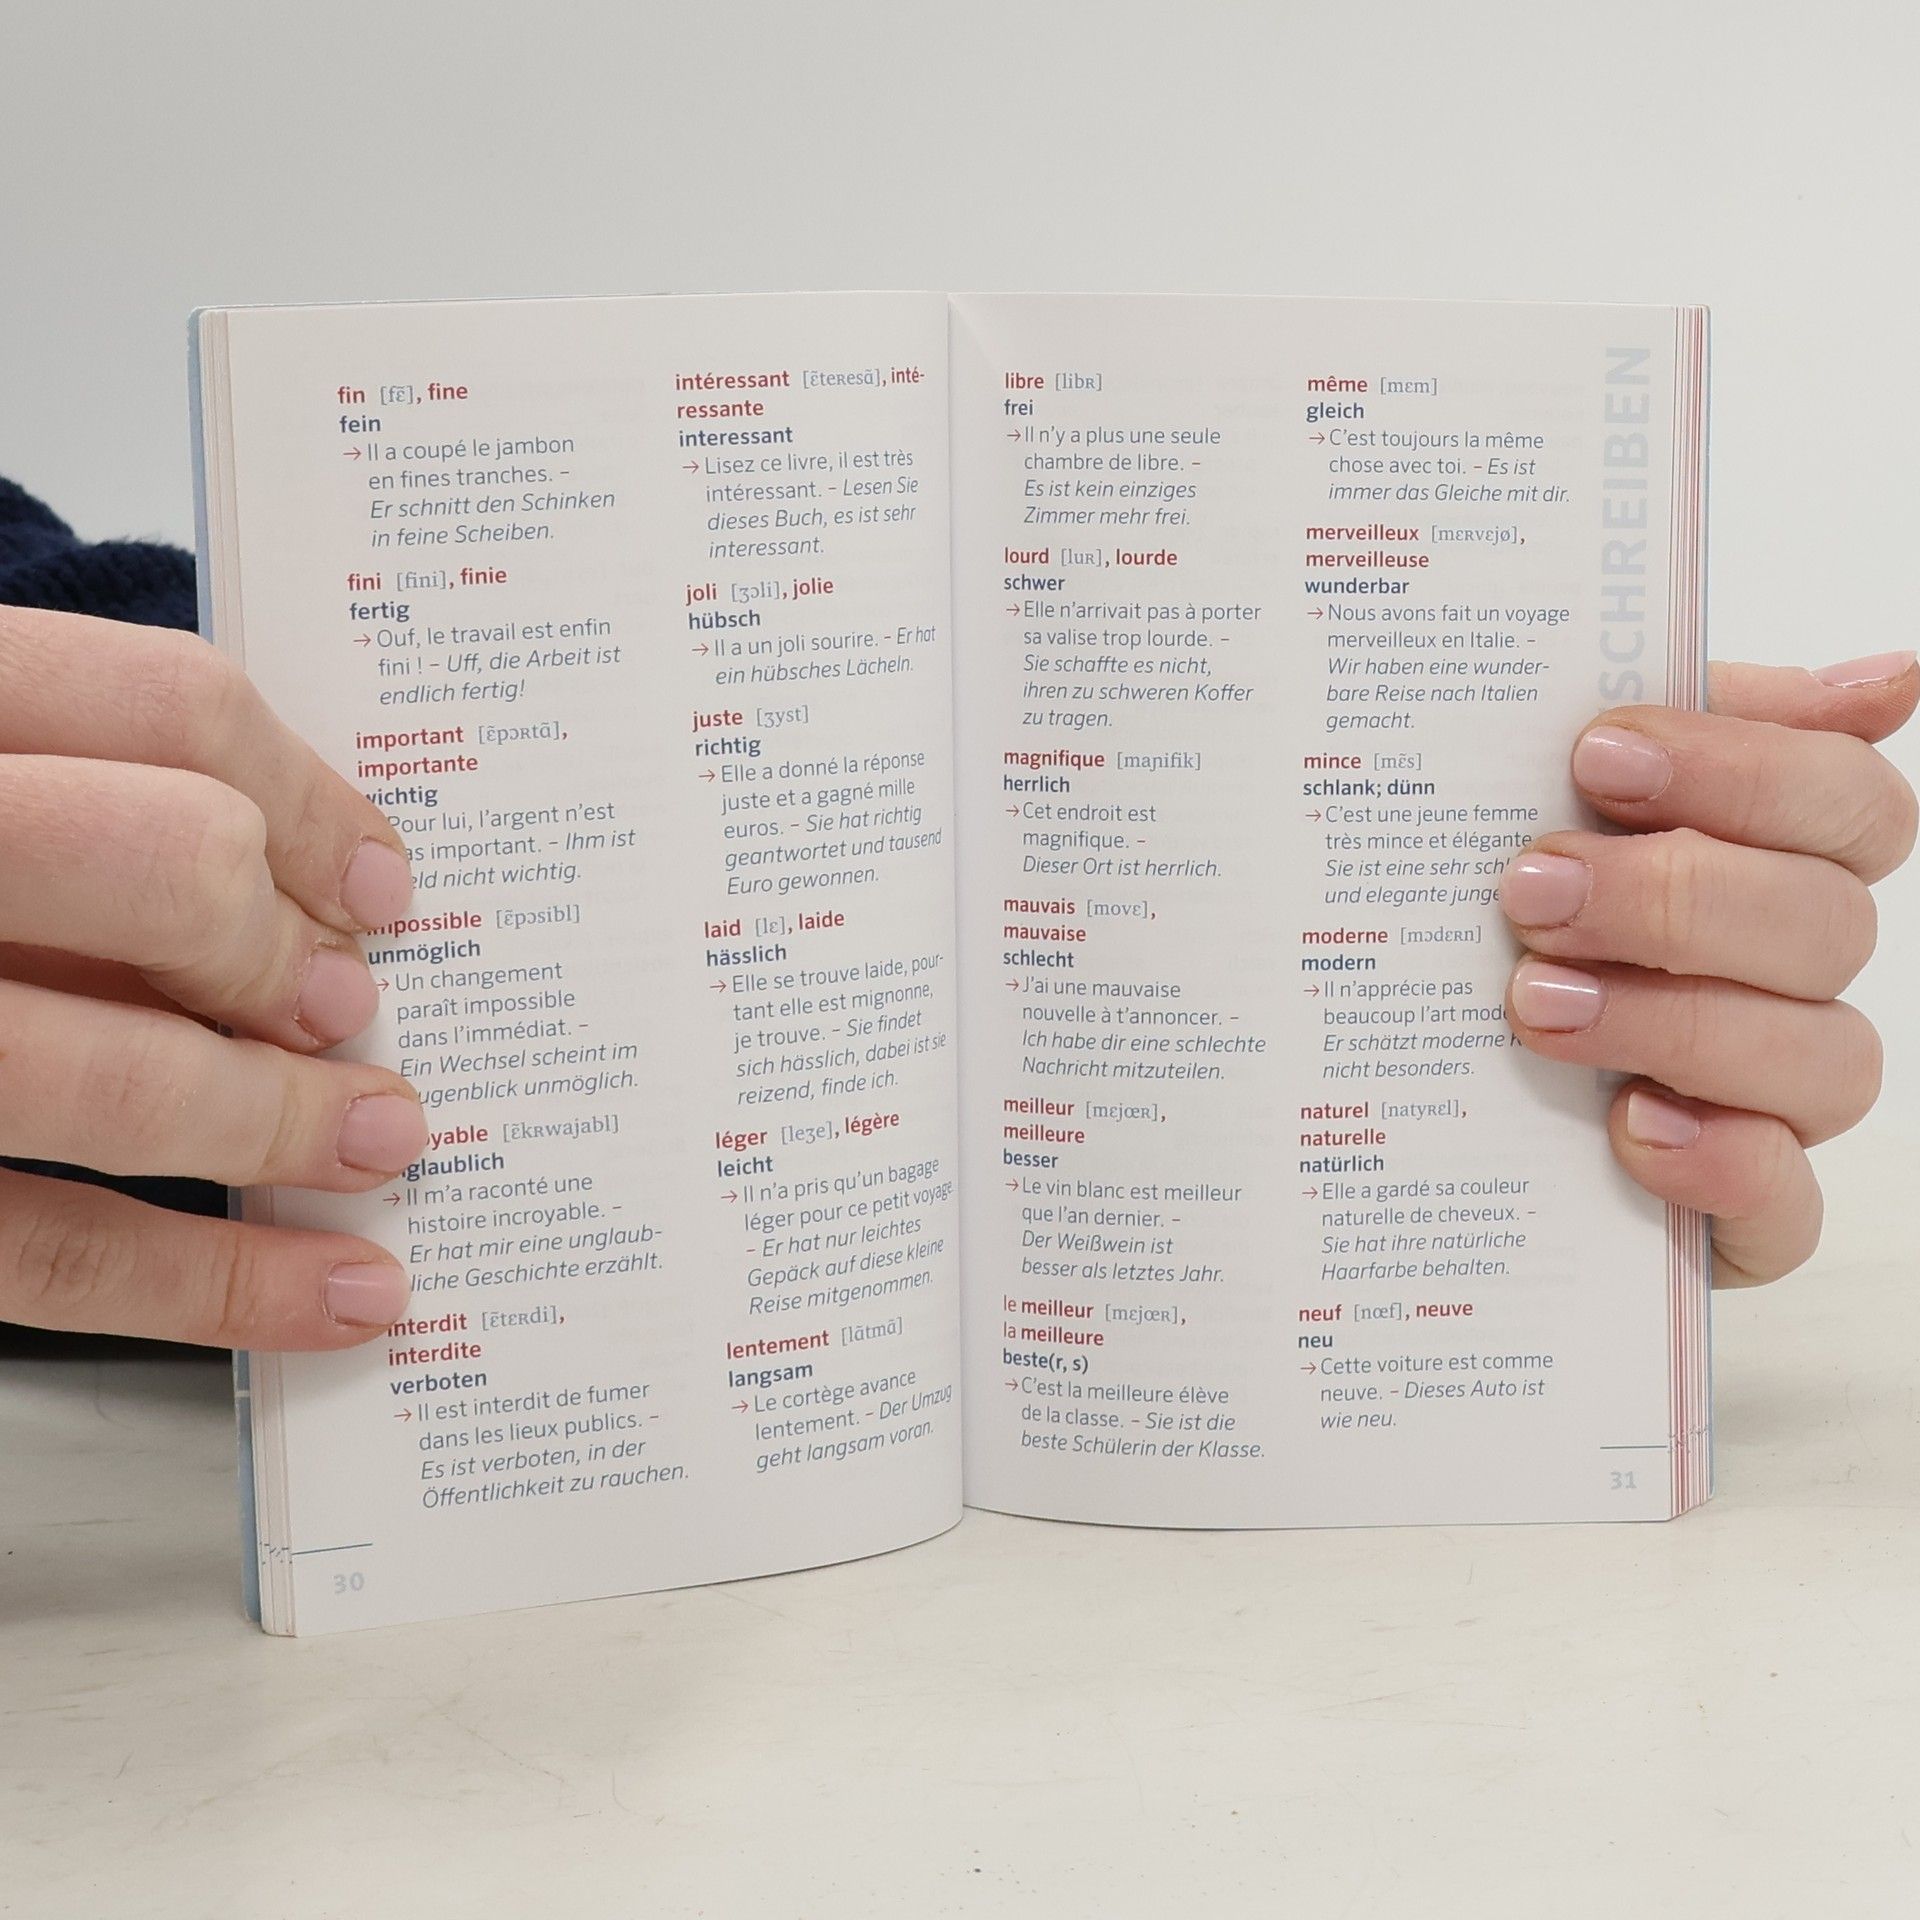 fin [fɛ̃], fine
fein
→ Il a coupé le jambon
en fines tranches. –
Er schnitt den Schinken
in feine Scheiben.
fini [fini], finie
fertig
→ Ouf, le travail est enfin
fini ! – Uff, die Arbeit ist
endlich fertig!
important [ɛ̃pɔʀtɑ̃],
importante
wichtig
Pour lui, l'argent n'est
as important. – Ihm ist
eld nicht wichtig.
impossible [ɛ̃pɔsibl]
unmöglich
→ Un changement
paraît impossible
dans l'immédiat. –
Ein Wechsel scheint im
ugenblick unmöglich.
oyable [ɛ̃kʀwajabl]
glaublich
→ Il m'a raconté une
histoire incroyable. –
Er hat mir eine unglaub-
liche Geschichte erzählt.
interdit [ɛ̃tɛʀdi],
interdite
verboten
→ Il est interdit de fumer
dans les lieux publics. –
Es ist verboten, in der
Öffentlichkeit zu rauchen.
30
intéressant [ɛ̃teʀesɑ̃], inté-
ressante
interessant
→ Lisez ce livre, il est très
intéressant. – Lesen Sie
dieses Buch, es ist sehr
interessant.
joli [ʒɔli], jolie
hübsch
→ Il a un joli sourire. – Er hat
ein hübsches Lächeln.
juste [ʒyst]
richtig
→ Elle a donné la réponse
juste et a gagné mille
euros. – Sie hat richtig
geantwortet und tausend
Euro gewonnen.
laid [lɛ], laide
hässlich
→ Elle se trouve laide, pour-
tant elle est mignonne,
je trouve. – Sie findet
sich hässlich, dabei ist sie
reizend, finde ich.
léger [leʒe], légère
leicht
→ Il n'a pris qu'un bagage
léger pour ce petit voyage
– Er hat nur leichtes
Gepäck auf diese kleine
Reise mitgenommen.
lentement [lɑ̃tmɑ̃]
langsam
→ Le cortège avance
lentement. – Der Umzug
geht langsam voran.
libre [libʀ]
frei
→ Il n'y a plus une seule
chambre de libre. –
Es ist kein einziges
Zimmer mehr frei.
lourd [luʀ], lourde
schwer
→ Elle n'arrivait pas à porter
sa valise trop lourde. –
Sie schaffte es nicht,
ihren zu schweren Koffer
zu tragen.
magnifique [maɲifik]
herrlich
→ Cet endroit est
magnifique. –
Dieser Ort ist herrlich.
mauvais [movɛ],
mauvaise
schlecht
→ J'ai une mauvaise
nouvelle à t'annoncer. –
Ich habe dir eine schlechte
Nachricht mitzuteilen.
meilleur [mɛjœʀ],
meilleure
besser
→ Le vin blanc est meilleur
que l'an dernier. –
Der Weißwein ist
besser als letztes Jahr.
le meilleur [mɛjœʀ],
la meilleure
beste(r, s)
→ C'est la meilleure élève
de la classe. – Sie ist die
beste Schülerin der Klasse.
même [mɛm]
gleich
→ C'est toujours la même
chose avec toi. – Es ist
immer das Gleiche mit dir.
merveilleux [mɛʀvɛjø],
merveilleuse
wunderbar
→ Nous avons fait un voyage
merveilleux en Italie. –
Wir haben eine wunder-
bare Reise nach Italien
gemacht.
mince [mɛ̃s]
schlank; dünn
→ C'est une jeune femme
très mince et élégante
Sie ist eine sehr sch
und elegante junge
moderne [mɔdɛʀn]
modern
→ Il n'apprécie pas
beaucoup l'art mod
Er schätzt moderne
nicht besonders.
naturel [natyʀɛl],
naturelle
natürlich
→ Elle a gardé sa couleur
naturelle de cheveux. –
Sie hat ihre natürliche
Haarfarbe behalten.
neuf [nœf], neuve
neu
→ Cette voiture est comme
neuve. – Dieses Auto ist
wie neu.
SCHREIBEN
31